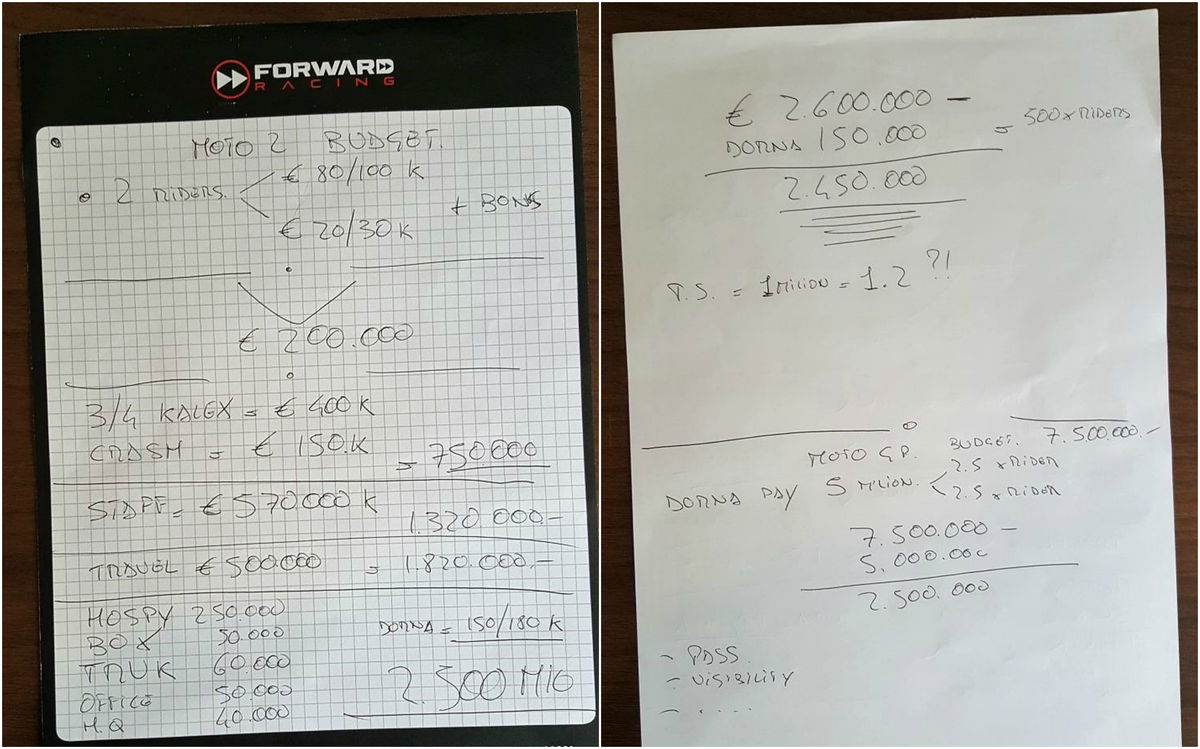 FORWARD
RACING
MOTO 2 BUDGET.
2 RIDERS. € 80/100 K
€ 20/30 K + BONS
€ 200.000
3/4 KALEX = € 400 K
CRASH = € 150.K = 750.000
STAFF = € 570000 K
1.320.000.-
TRAVEL € 500.000 = 1.820.000,-
HOSPY 250.000
BOX 50.000
TRUK 60.000
OFFICE 50.000
H.Q 40.000
DORNA = 150/180 K
2.500 MIO
€ 2.600.000 -
DORNA 150.000 = 500 x RIDERS
2.450.000
P.S. = 1 MILION = 1.2 ?!
MOTO G.P. BUDGET. 7.500.000.-
DORNA PAY 5 MILION. 2.5 x RIDER
2.5 x RIDER
7.500.000 -
5.000.000
2.500.000
- PASS
- VISIBILITY
- . . . . .